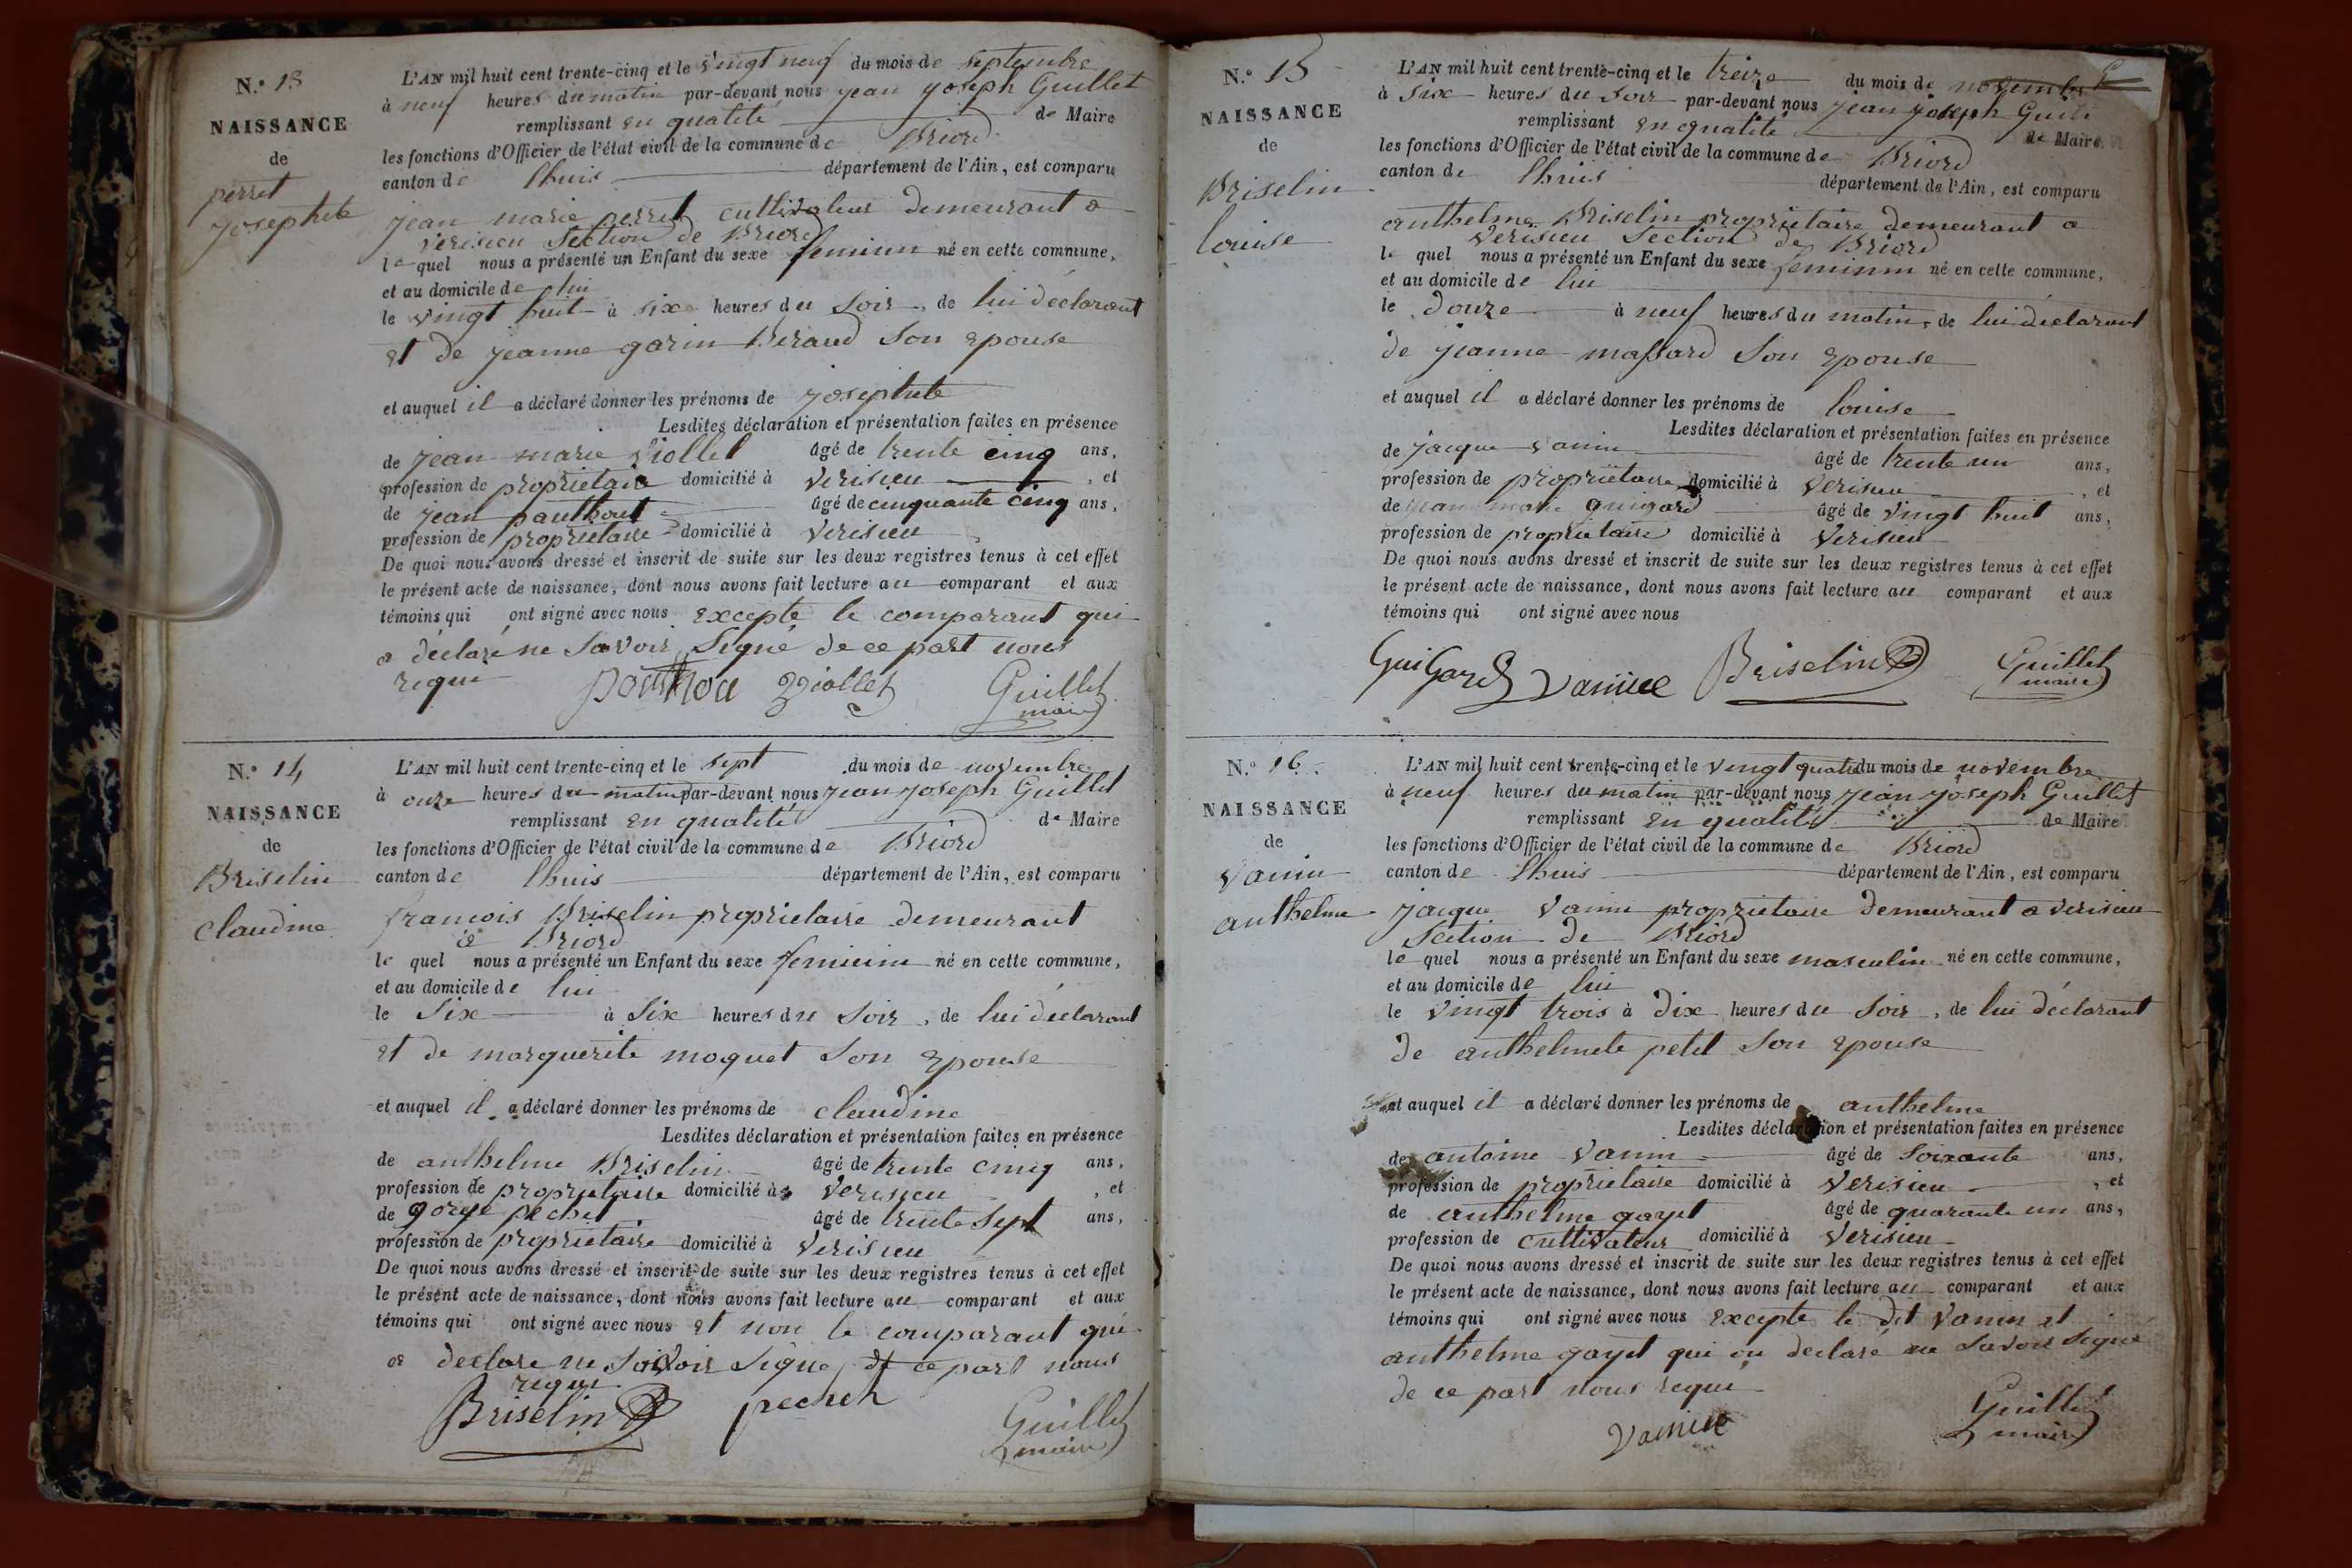 N.º 13
NAISSANCE
de
perret
josephete
L'AN mil huit cent trente-cinq et le vingt neuf du mois de septembre
à neuf heures du matin par-devant nous jean joseph Guillet
remplissant en qualité de Maire
les fonctions d'Officier de l'état civil de la commune de Briord
canton de lhuis département de l'Ain, est comparu
jean marie perret cultivateur demeurant a
verisieu Section de Briord
le quel nous a présenté un Enfant du sexe feminin né en cette commune,
et au domicile de lui
le vingt huit à six heures du soir, de lui déclarant
et de jeanne garin Beraud son epouse
et auquel il a déclaré donner les prénoms de josephete
Lesdites déclaration et présentation faites en présence
de jean marie viollet âgé de trente cinq ans,
profession de proprietaire domicilié à verisieu, et
de jean panthout âgé de cinquante cinq ans,
profession de proprietaire domicilié à verisieu
De quoi nous avons dressé et inscrit de suite sur les deux registres tenus à cet effet
le présent acte de naissance, dont nous avons fait lecture au comparant et aux
témoins qui ont signé avec nous excepté le comparant qui
a déclaré ne savoir Signé de ce part nous
requi
viollet Guillet
maire
N.º 14
NAISSANCE
de
Briselin
claudine
L'AN mil huit cent trente-cinq et le sept du mois de novembre
à onze heures du matin par-devant nous jean joseph Guillet
remplissant en qualité de Maire
les fonctions d'Officier de l'état civil de la commune de Briord
canton de lhuis département de l'Ain, est comparu
francois Briselin proprietaire demeurant
a Briord
le quel nous a présenté un Enfant du sexe feminin né en cette commune,
et au domicile de lui
le six à six heures du soir, de lui déclarant
et de marguerite moquet son epouse
et auquel il a déclaré donner les prénoms de claudine
Lesdites déclaration et présentation faites en présence
de anthelme Briselin âgé de trente cinq ans,
profession de proprietaire domicilié à verisieu, et
de gorge pechet âgé de trente sept ans,
profession de proprietaire domicilié à verisieu
De quoi nous avons dressé et inscrit de suite sur les deux registres tenus à cet effet
le présent acte de naissance, dont nous avons fait lecture au comparant et aux
témoins qui ont signé avec nous et non le comparant qui
a declare ne savoir signe de ce part nous
requi
Briselin pechet Guillet
maire
N.º 15
NAISSANCE
de
Briselin
louise
L'AN mil huit cent trente-cinq et le treize du mois de novembre
à six heures du soir par-devant nous jean joseph
remplissant en qualité de Maire
les fonctions d'Officier de l'état civil de la commune de Briord
canton de lhuis département de l'Ain, est comparu
anthelme Briselin proprietaire demeurant a
verisieu Section de Briord
le quel nous a présenté un Enfant du sexe feminin né en cette commune,
et au domicile de lui
le douze à neuf heures du matin, de lui déclarant
de jeanne massard son epouse
et auquel il a déclaré donner les prénoms de louise
Lesdites déclaration et présentation faites en présence
de jacque vanin âgé de trente un ans,
profession de proprietaire domicilié à verisieu, et
de jean marie guigard âgé de vingt huit ans,
profession de proprietaire domicilié à verisieu
De quoi nous avons dressé et inscrit de suite sur les deux registres tenus à cet effet
le présent acte de naissance, dont nous avons fait lecture au comparant et aux
témoins qui ont signé avec nous
Guigard Briselin Guillet
maire
N.º 16
NAISSANCE
de
vanin
anthelme
L'AN mil huit cent trente-cinq et le vingt quatre du mois de novembre
à neuf heures du matin par-devant nous jean joseph Guillet
remplissant en qualité de Maire
les fonctions d'Officier de l'état civil de la commune de Briord
canton de lhuis département de l'Ain, est comparu
jacque vanin proprietaire demeurant a verisieu
Section de Briord
le quel nous a présenté un Enfant du sexe masculin né en cette commune,
et au domicile de lui
le vingt trois à dix heures du soir, de lui déclarant
de anthelmete petit son epouse
et auquel il a déclaré donner les prénoms de anthelme
Lesdites déclaration et présentation faites en présence
de antoine vanin âgé de soixante ans,
profession de proprietaire domicilié à verisieu, et
de anthelme gayet âgé de quarante un ans,
profession de cultivateur domicilié à verisieu
De quoi nous avons dressé et inscrit de suite sur les deux registres tenus à cet effet
le présent acte de naissance, dont nous avons fait lecture au comparant et aux
témoins qui ont signé avec nous excepte le dit vanin et
anthelme gayet qui on declaré ne savoir signé
de ce part nous requi
Guillet
maire